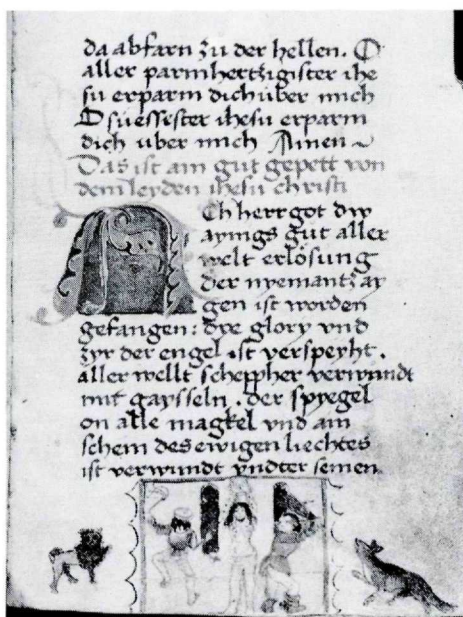 da abfarn zu der hellen. O
aller parmhertzigister ihe
su erparm dich über mich
O süessester ihesu erparm
dich über mich Amen
Das ist ain gut gepett von
dem leyden ihesu christi
Ach herr got dw
aynigs gut aller
welt erlösung
der nyemantz ay
gen ist worden
gefangen: dye glory vnd
zyr der engel ist verspeyht.
aller wellt schepher verwundt
mit gaysseln. der spyegel
on alle magkel vnd ain
schein des ewigen liechtes
ist verwundt vndter seinen